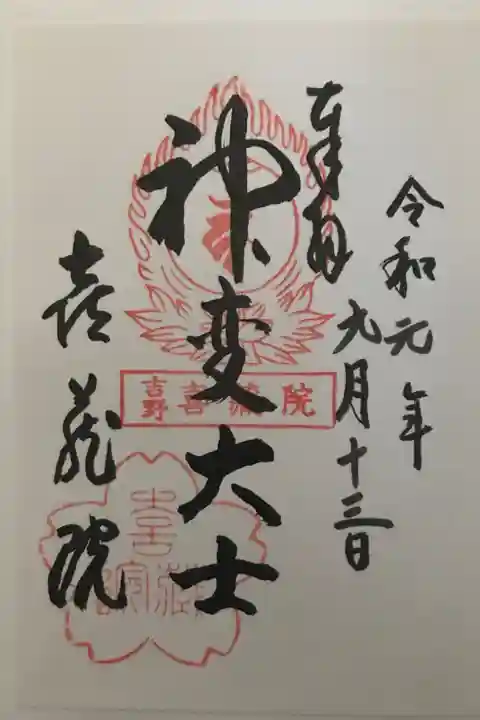 令和元年
九月十三日
奉拝
神変大士
吉野 喜蔵院
喜蔵院